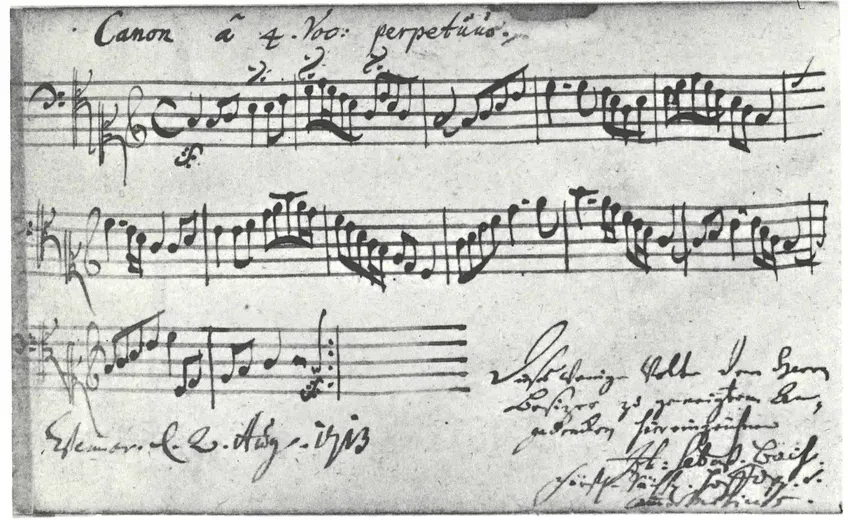 Canon â 4. Voc: perpetuus.
Weimar. d. 2. Aug. 1713
Dieses wenige wolte dem Herrn
Besizer zu geneigtem An-
gedencken hier einzeichnen
Joh: Sebast. Bach.
Fürstl. Sächs. HoffOrg. v.
Cammer Musicus.